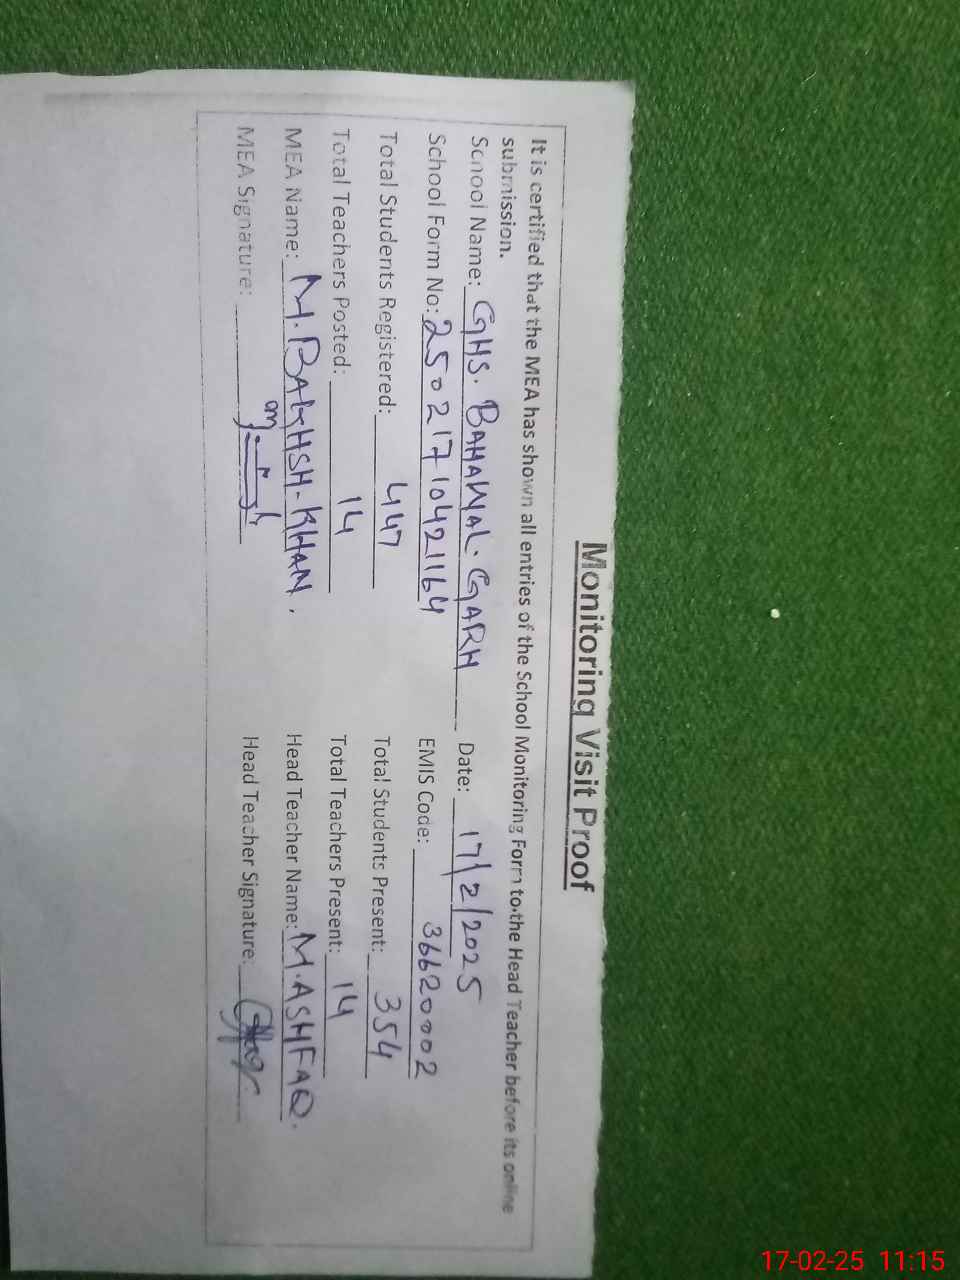 Monitoring Visit Proof
It is certified that the MEA has shown all entries of the School Monitoring Form to the Head Teacher before its online
submission.
School Name: GHS. BAHAWAL. GARH Date: 17/2/2025
School Form No: 25021710421164 EMIS Code: 36620002
Total Students Registered: 447 Total Students Present: 354
Total Teachers Posted: 14 Total Teachers Present: 14
MEA Name: M. BAKHSH-KHAN. Head Teacher Name: M. ASHFAQ.
MEA Signature: Head Teacher Signature:
17-02-25 11:15